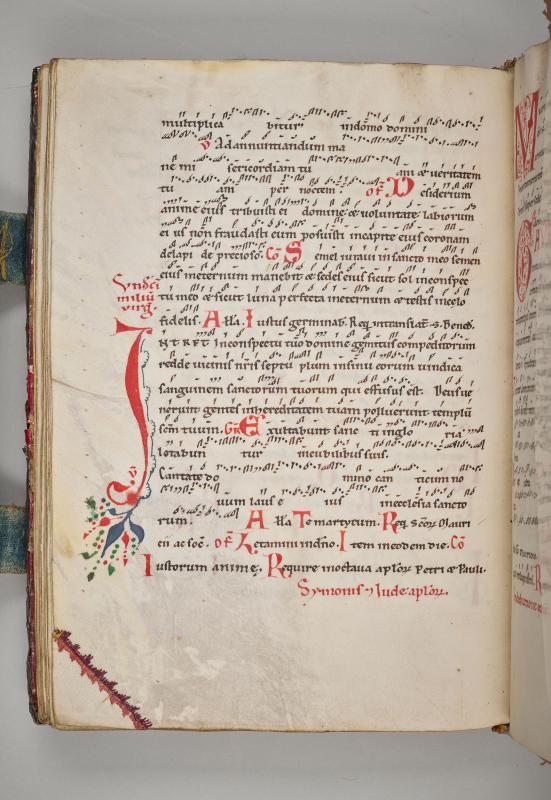 multiplica bitur indomo domini
v Adannuntiandum ma
ne mi sericordiam tu am & ueritatem
tu am per noctem. Of̄. Desiderium
anime eius tribuisti ei domine & uoluntate labiorum
ei us non fraudasti eum posuisti incapite eius coronam
delapi de precioso. Cō Semel iuraui insancto meo semen
eius ineternum manebit & sedes eius sicut sol inconspec
tu meo & sicut luna perfecta ineternum & testis incelo
fidelis. Alla. Iustus germinab.
virg.
INTRET inconspectu tuo domine gemitus compeditorum
redde uicinis nr̄is septu plum insinu eorum uindica
sanguinem sanctorum tuorum qui effusus est. Deus ue
nerunt gentes inhereditatem tuam polluerunt templū
scm̄ tuum. Gr̄ Exultabunt sanc ti inglo ria
lotabun tur incubilibus suis.
v
Cantate do mino can ticum no
uum laus e ius inecclesia sancto
rum. Alla Te martyrum. Req. scōꝝ Mauri
cii ac soc̄. Of̄. Letamini indn̄o. Item ineodem die. Cō
Iustorum anime. Require inoctaua aplōꝝ Petri & Pauli.
Symonis ⁊ Iude aplōꝝ.